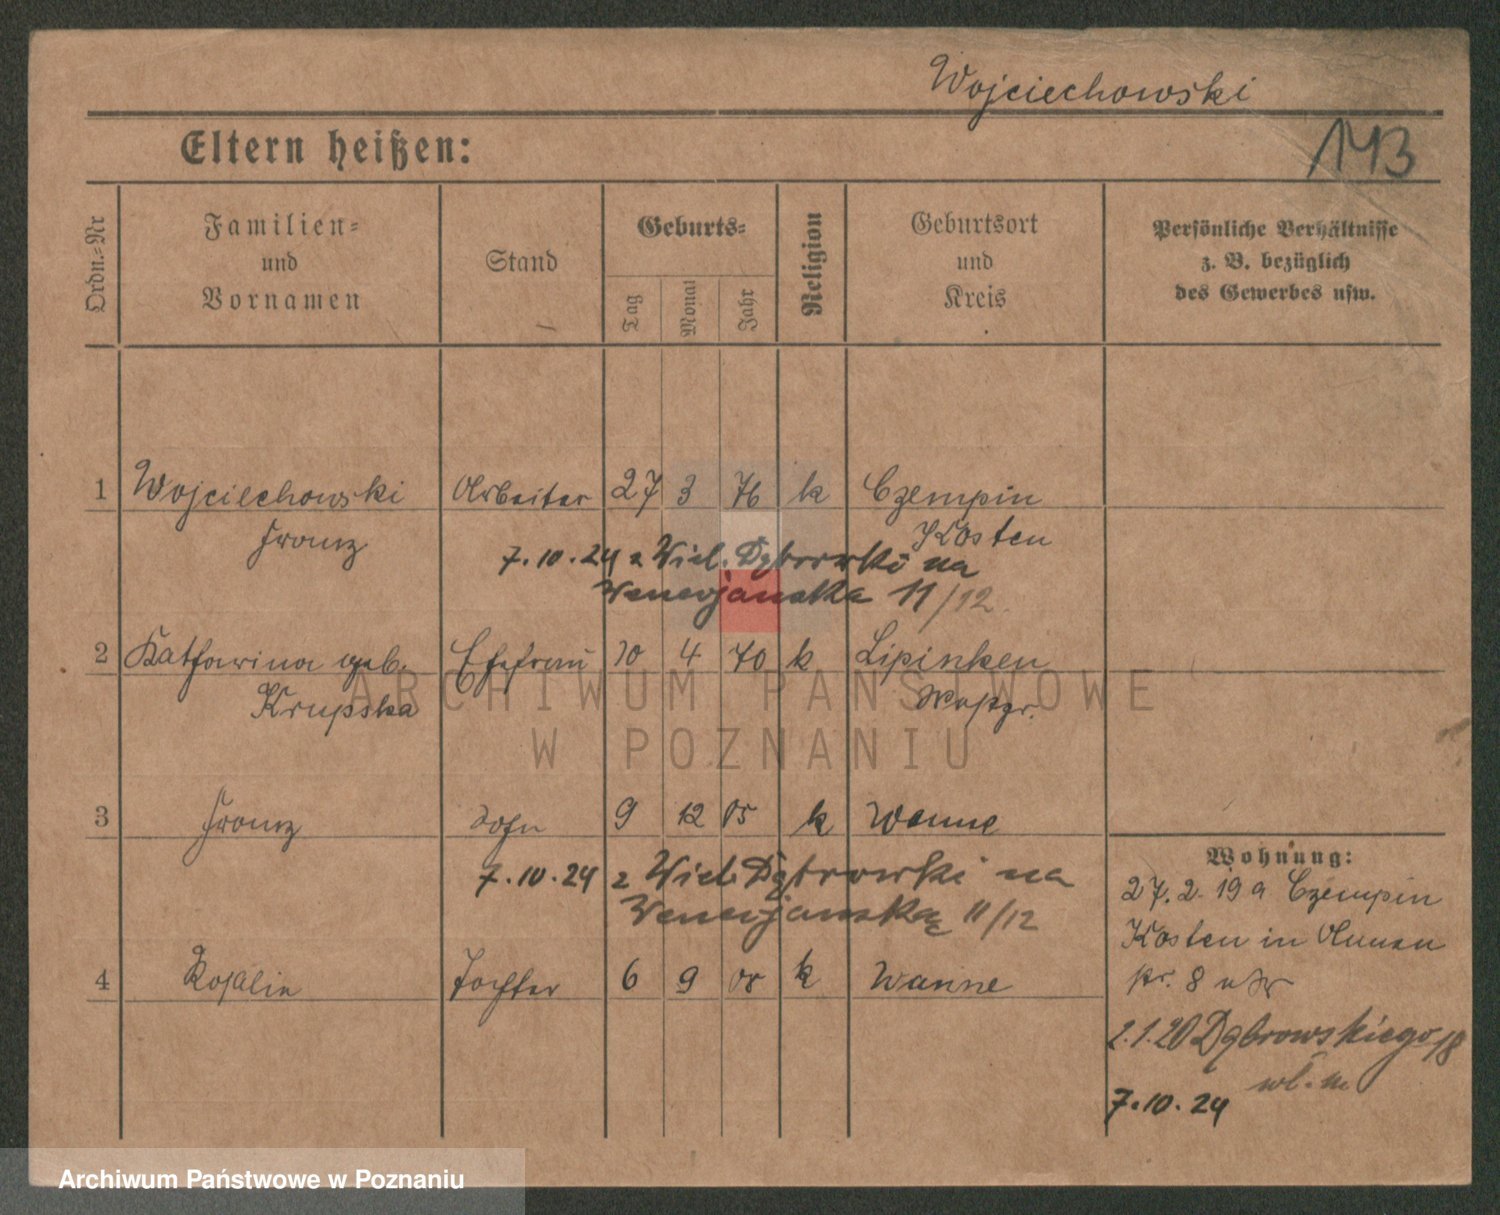 Wojciechowski
143
Eltern heißen:
Ordn.-Nr
Familien-
und
Vornamen
Stand
Geburts-
Tag
Monat
Jahr
Religion
Geburtsort
und
Kreis
Persönliche Verhältnisse
z. B. bezüglich
des Gewerbes usw.
1 Wojciechowski Arbeiter 27 3 76 k Czempin
Franz Kosten
7.10.24 z Wiel. Dąbrowki na
Wenecjanska 11/12
2 Katharina geb. Ehefrau 10 4 70 k Lipinken
Krupska Westpr.
3 Franz Sohn 9 12 05 k Wanne
7.10.24 z Wiel. Dąbrowki na
Wenecjanska 11/12
4 Rosalie Tochter 6 9 08 k Wanne
Wohnung:
27.2.19 a Czempin
Kosten in
str. 8
2.1.20 Dąbrowskiego 18
7.10.24
ARCHIWUM PAŃSTWOWE
W POZNANIU
Archiwum Państwowe w Poznaniu